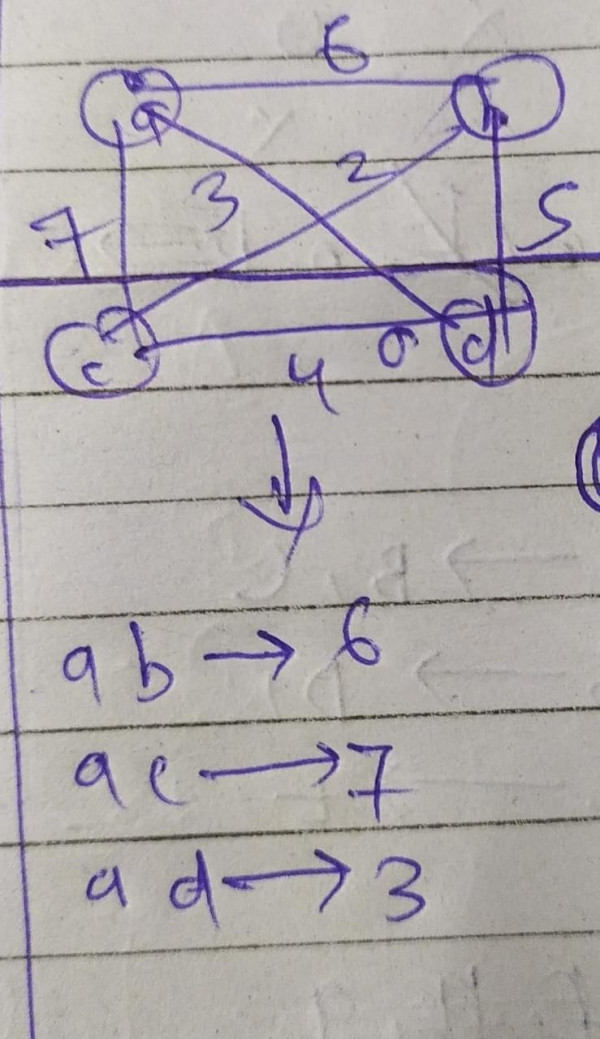 6
a b
3 2
7 5
c d
4
ab → 6
ac → 7
ad → 3